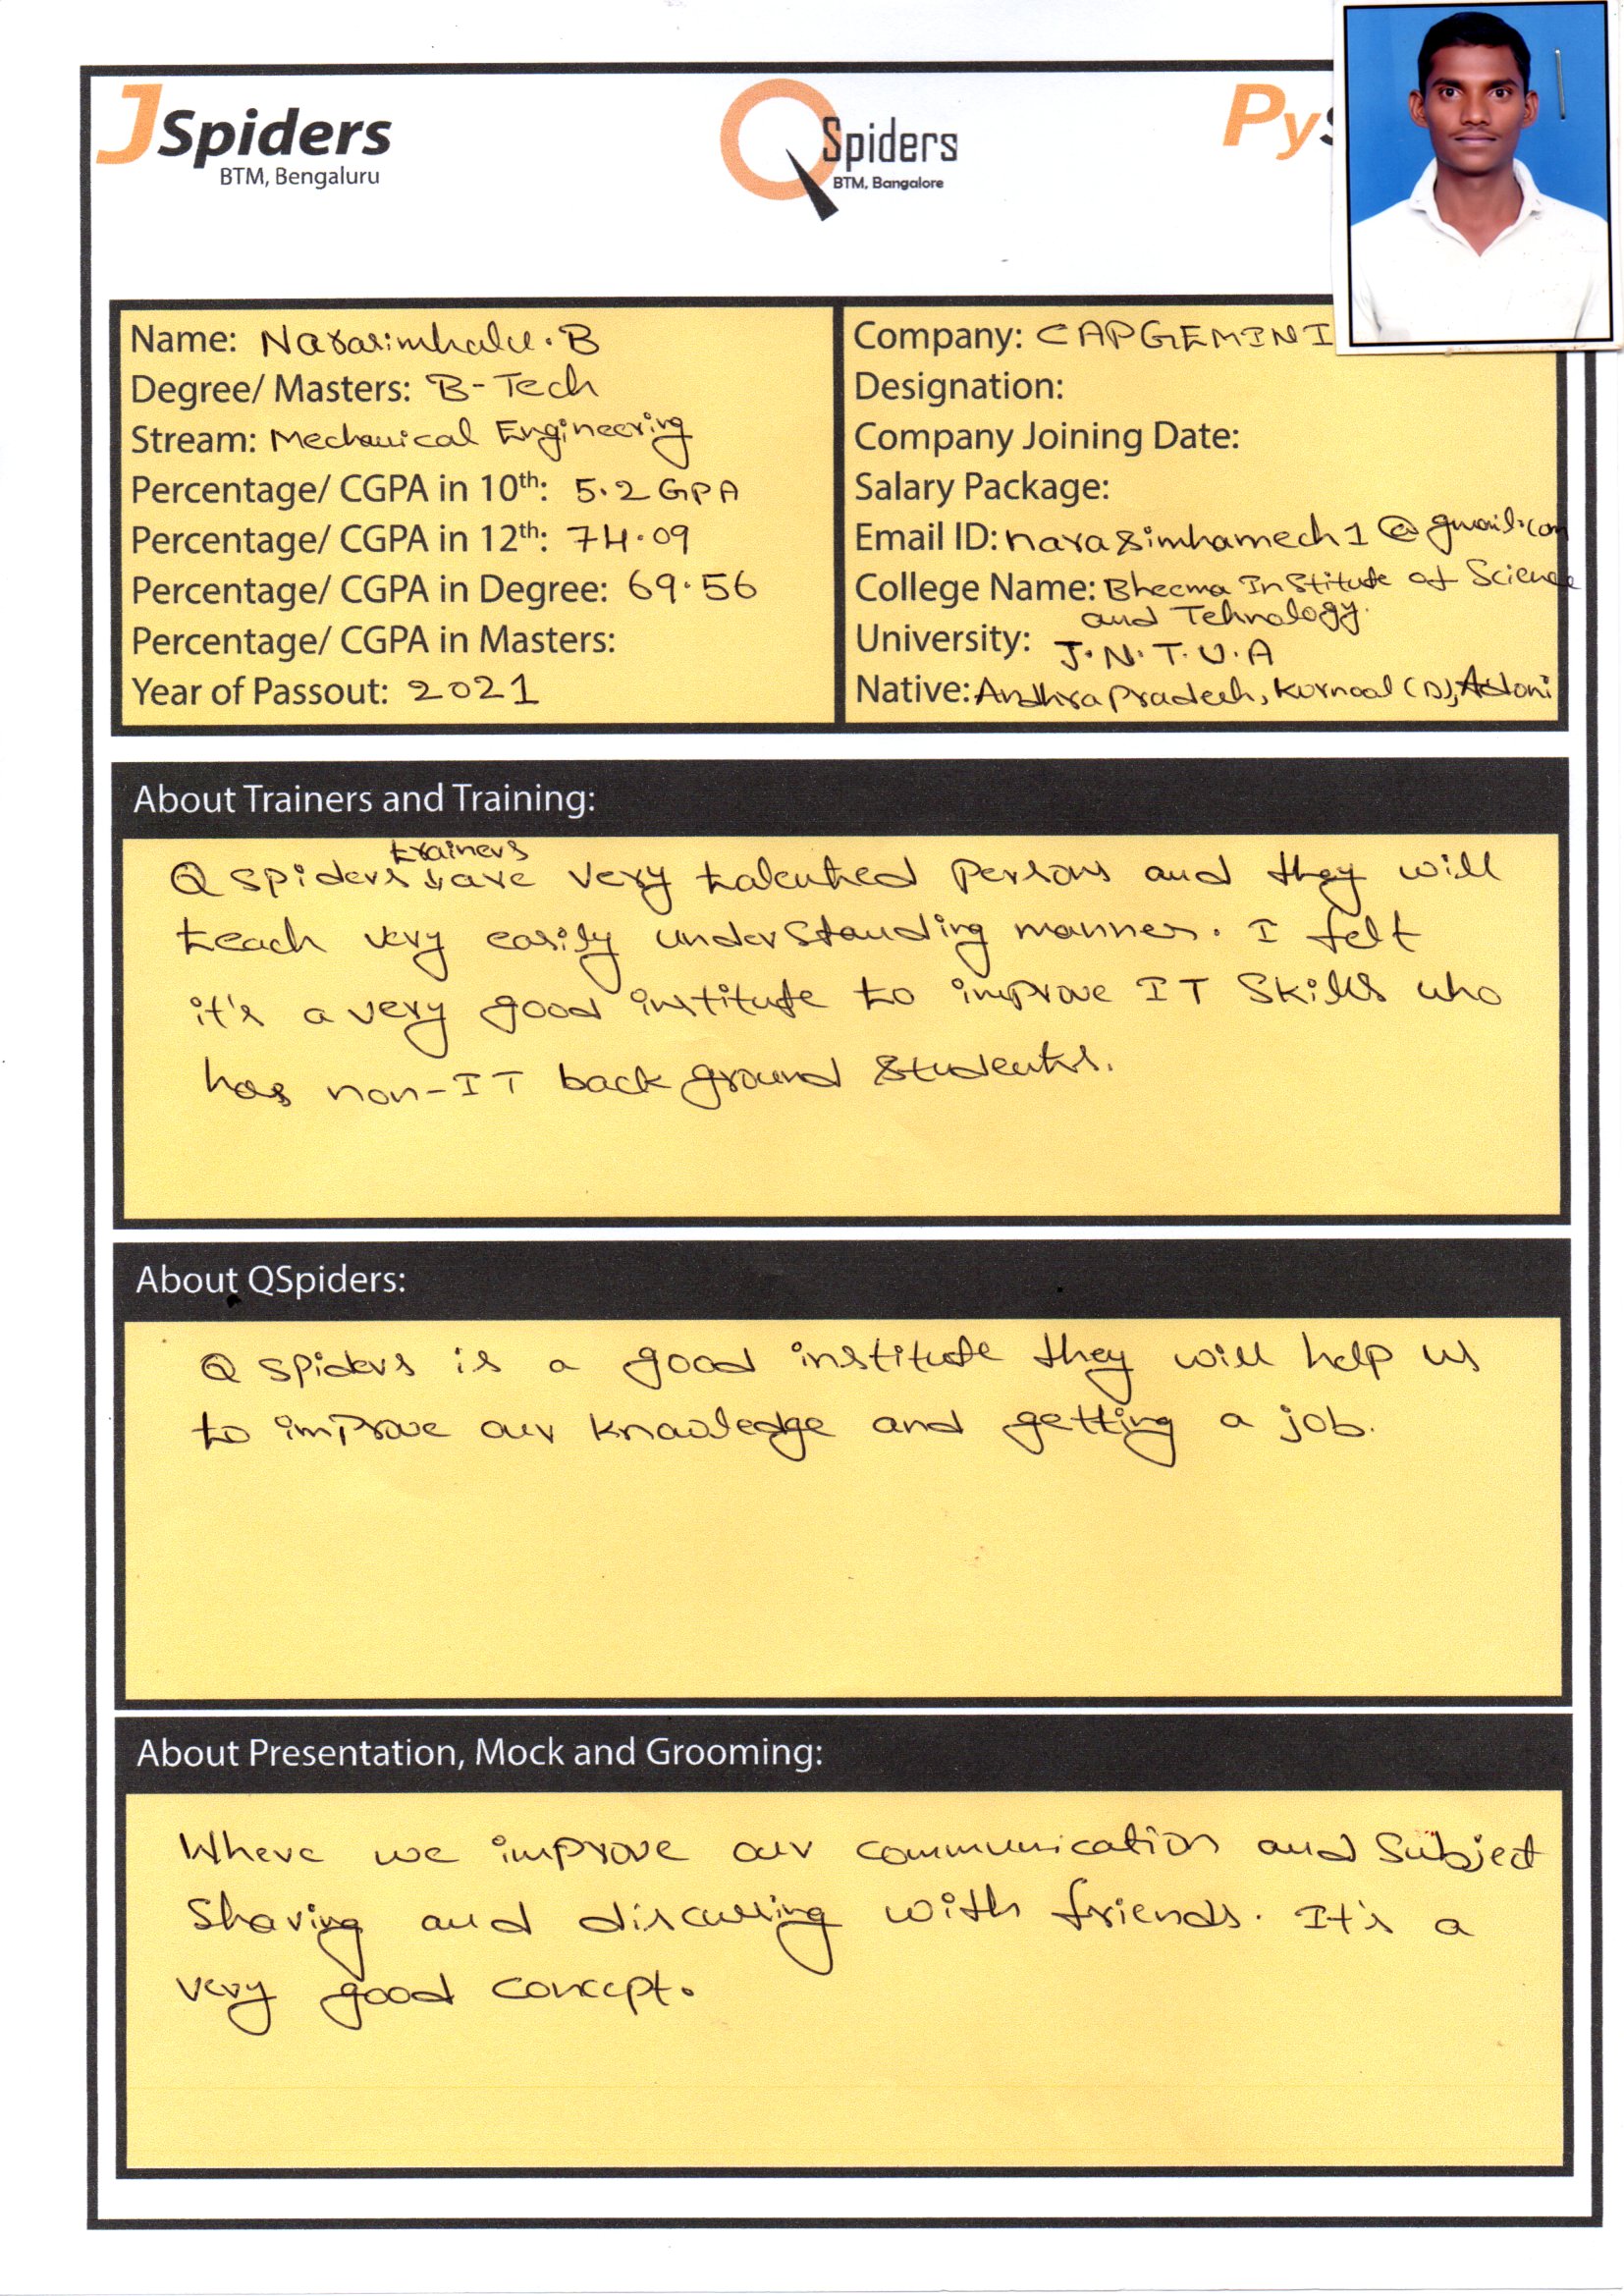 JSpiders
BTM, Bengaluru
QSpiders
BTM, Bangalore
PyS
Name: Narasimhalu.B
Degree/ Masters: B-Tech
Stream: Mechanical Engineering
Percentage/ CGPA in 10th: 5.2 GPA
Percentage/ CGPA in 12th: 74.09
Percentage/ CGPA in Degree: 69.56
Percentage/ CGPA in Masters:
Year of Passout: 2021
Company: CAPGEMINI
Designation:
Company Joining Date:
Salary Package:
Email ID: narasimhamech1@gmail.com
College Name: Bheema Institute of Science
and Tehnology.
University: J.N.T.U.A
Native: Andhra Pradesh, Kurnool (D), Adoni
About Trainers and Training:
trainers
Q spiders are very talented persons and they will
teach very easily understanding manner. I felt
it's a very good institute to improve IT Skills who
has non-IT back ground students.
About QSpiders:
Q spiders is a good institute they will help us
to improve our knowledge and getting a job.
About Presentation, Mock and Grooming:
Where we improve our communication and Subject
Sharing and discussing with friends. It's a
very good concept.